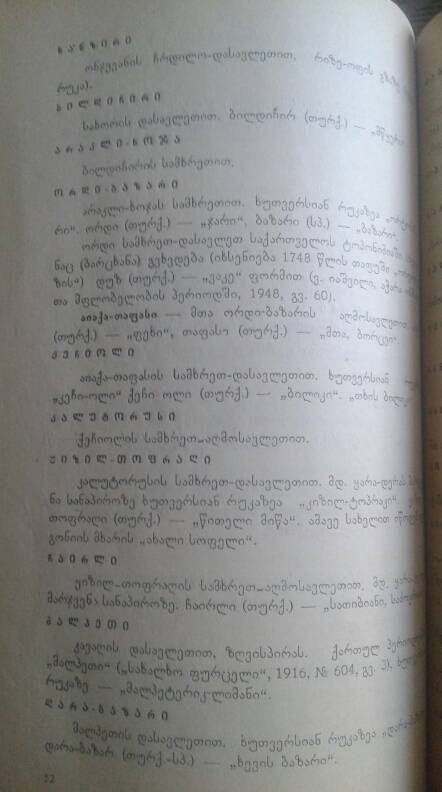 ხანზირი
ონჯევანის ჩრდილო-დასავლეთით, რიზე-ოფის გზიზე
რუკა).
ბილდიჩირი
სახორის დასავლეთით. ბილდიჩირ (თურქ.) — „მწყერი
არაკლი-ხოჯა
ბილდიჩირის სამხრეთით.
ორდი-ბაზარი
არაკლი-ხოჯას სამხრეთით. ხუთვერსიან რუკაზეა
რი“. ორდი (თურქ.) — „ჯარი“. ბაზარი (სპ.) — „ბაზარი“.
ორდი სამხრეთ-დასავლეთ საქართველოს ტოპონიმიაში
ნაც (ბარცხანა) გვხვდება (იხსენიება 1748 წლის თაფუში
ზის“) დუზ (თურქ.) — „ვაკე“ ფორმით (ვ. იაშვილი, აჭარა
თა მფლობელობის პერიოდში, 1948, გვ. 60).
აიაქა-თაფასი — მთა ორდი-ბაზარის აღმოსავლეთით
(თურქ.) — „ფეხი“, თაფასი (თურქ.) — „მთა, ბორცვი“.
ქეჩიოლი
აიაქა-თაფასის სამხრეთ-დასავლეთით. ხუთვერსიან
„კეჩი-ოლი“ ქეჩი ოლი (თურქ.) — „ბილიკი“. „თხის ბილიკი
კალუტორუსი
ქეჩიოლის სამხრეთ-აღმოსავლეთით.
ყიზილ-თოფრაღი
კალუტორუსის სამხრეთ-დასავლეთით. მდ. ყარა-დერეს
ნა სანაპიროზე ხუთვერსიან რუკაზეა „კიზილ-ტოპრაკი“.
თოფრაღი (თურქ.) — „წითელი მიწა“. ამავე სახელით
გონიის მხარის „ახალი სოფელი“.
ჩაირლი
ყიზილ-თოფრაღის სამხრეთ-აღმოსავლეთით. მდ. ყარა
მარჯვენა სანაპიროზე. ჩაირლი (თურქ.) — „სათიბიანი,
ბალაეთი
კავალის დასავლეთით, ზღვისპირას. ქართულ
„მალპეთი“ („სახალხო ფურცელი“, 1916, № 604, გვ. 3),
რუკაზე — „მალპეტერიკ-ლიმანი“.
დარა-ბაზარი
მალპეთის დასავლეთით. ხუთვერსიან რუკაზეა
დარა-ბაზარ (თურქ.-სპ.) — „ხევის ბაზარი“.
52